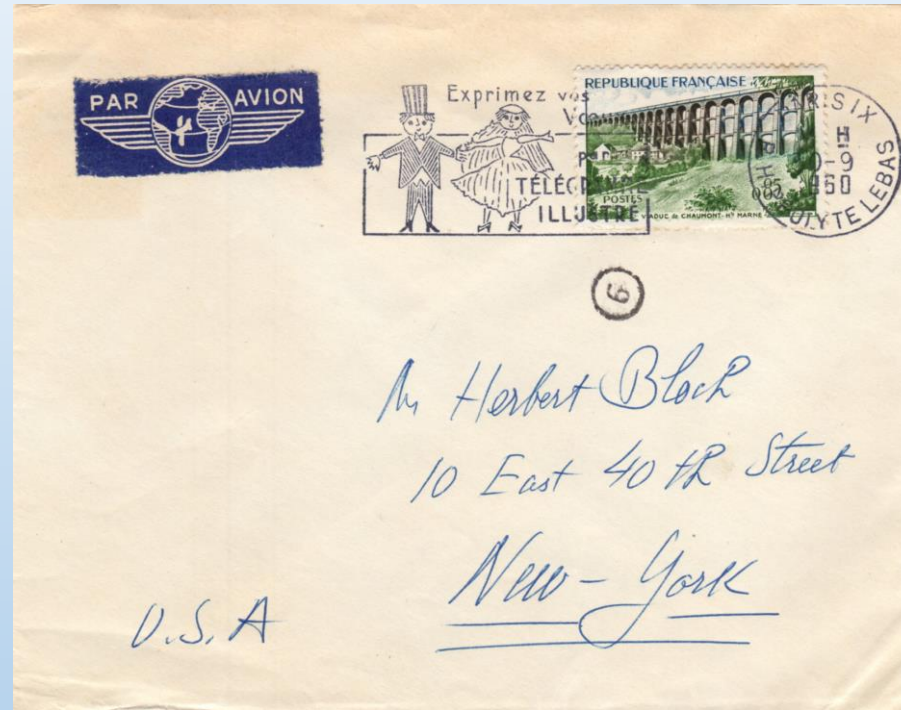 PAR AVION
Exprimez vos
TÉLÉGRAMME
ILLUSTRÉ
REPUBLIQUE FRANÇAISE
POSTES
VIADUC de CHAUMONT-Hᵀᴱ MARNE
PARIS IX
R. HIPPOLYTE LEBAS
6
Mr Herbert Bloch
10 East 40 th Street
New-York
U.S.A